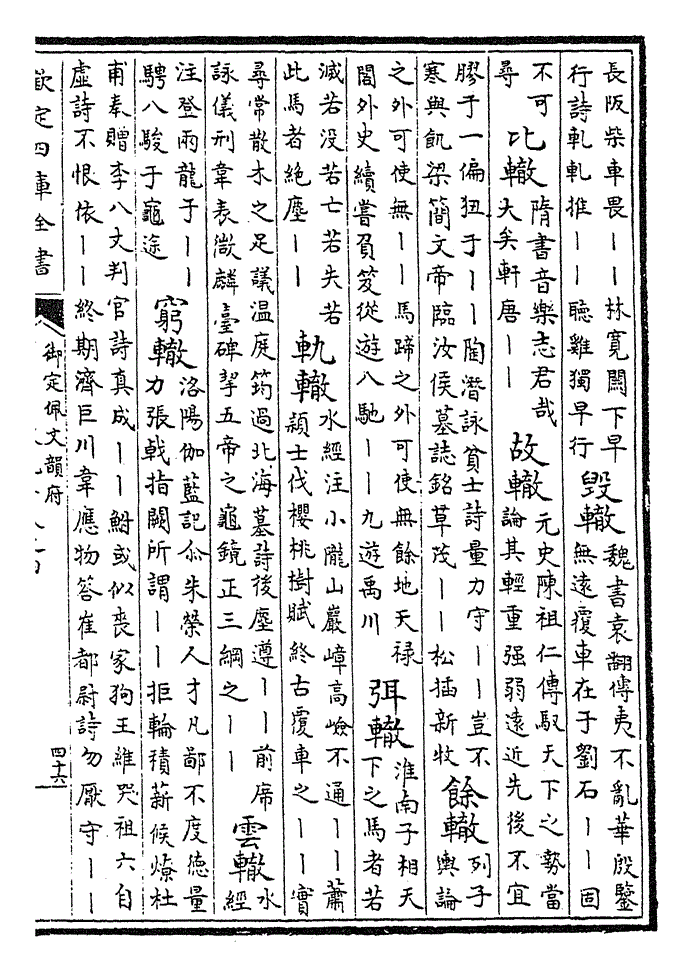 長阪柴車畏丨丨林寛闕下早
行詩軋軋推丨丨聽雞獨早行
毀轍
魏書袁翻傳夷不亂華殷鑒
無遠覆車在于劉石丨丨固
不可
尋
比轍
隋書音樂志君哉
大矣軒唐丨丨
故轍
元史陳祖仁傳馭天下之勢當
論其輕重强弱遠近先後不宜
膠于一偏狃于丨丨陶潛詠貧士詩量力守丨丨豈不
寒與飢梁簡文帝臨汝侯墓誌銘草茂丨丨松插新枚
餘轍
列子
輿論
之外可使無丨丨馬蹄之外可使無餘地天禄
閣外史續嘗負笈從遊八馳丨丨九遊禹川
弭轍
淮南子相天
下之馬者若
滅若没若亡若失若
此馬者絶塵丨丨
軌轍
水經注小隴山巖嶂高嶮不通丨丨蕭
穎士伐櫻桃樹賦終古覆車之丨丨實
尋常散木之足議温庭筠過北海墓詩後塵遵丨丨前席
詠儀刑韋表微麟臺碑挈五帝之龜鏡正三綱之丨丨
雲轍
水
經
注登雨龍于丨丨
騁八駿于龜途
窮轍
洛陽伽藍記尒朱榮人才凡鄙不度德量
力張戟指闕所謂丨丨拒輪積薪候燎杜
甫奉贈李八丈判官詩真成丨丨鮒或似喪家狗王維哭祖六自
虚詩不恨依丨丨終期濟巨川韋應物答崔都尉詩勿厭守丨丨
欽定四庫全書
御定佩文韻府
四十六